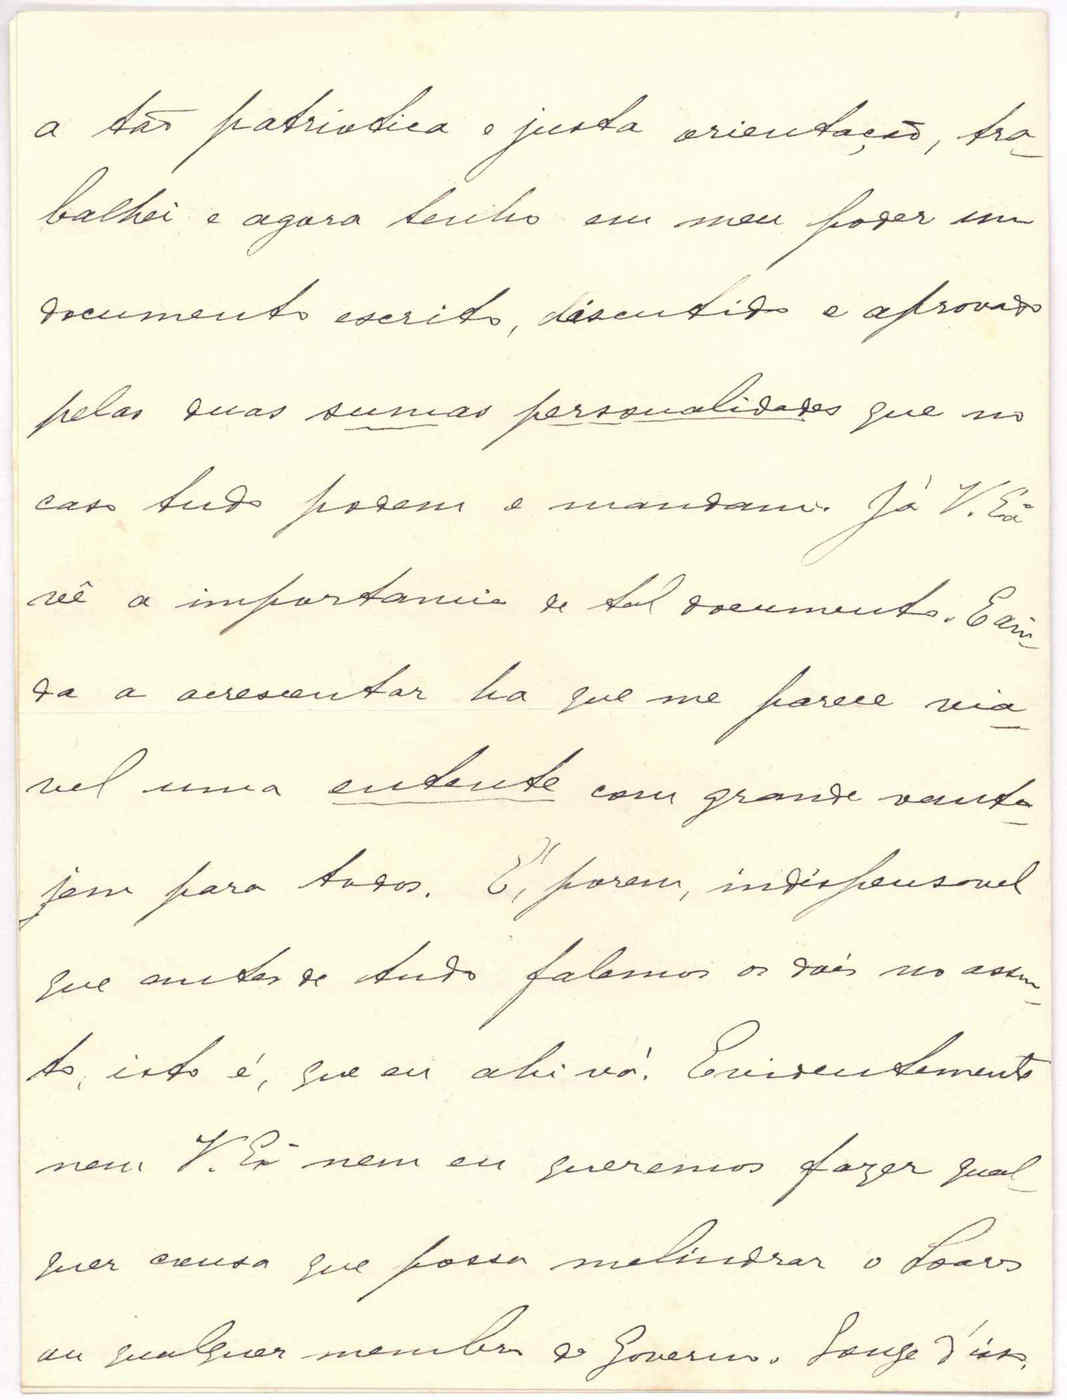 a tão patriotica e justa orientação, tra-
balhei e agora tenho em meu poder um
documento escrito, discutido e aprovado
pelas duas sumas personalidades que no
caso tudo podem e mandam. Já V. Exª
vê a importancia de tal documento. E ain-
da a acrescentar ha que me parece via-
vel uma entente com grande vanta-
jem para todos. É, porem, indispensavel
que antes de tudo falemos os dois no assun-
to, isto é, que eu ahi vá. Evidentemente
nem V. Exª nem eu queremos fazer qual-
quer cousa que possa melindrar o Soares
ou qualquer membro do Governo. Longe d'isso,